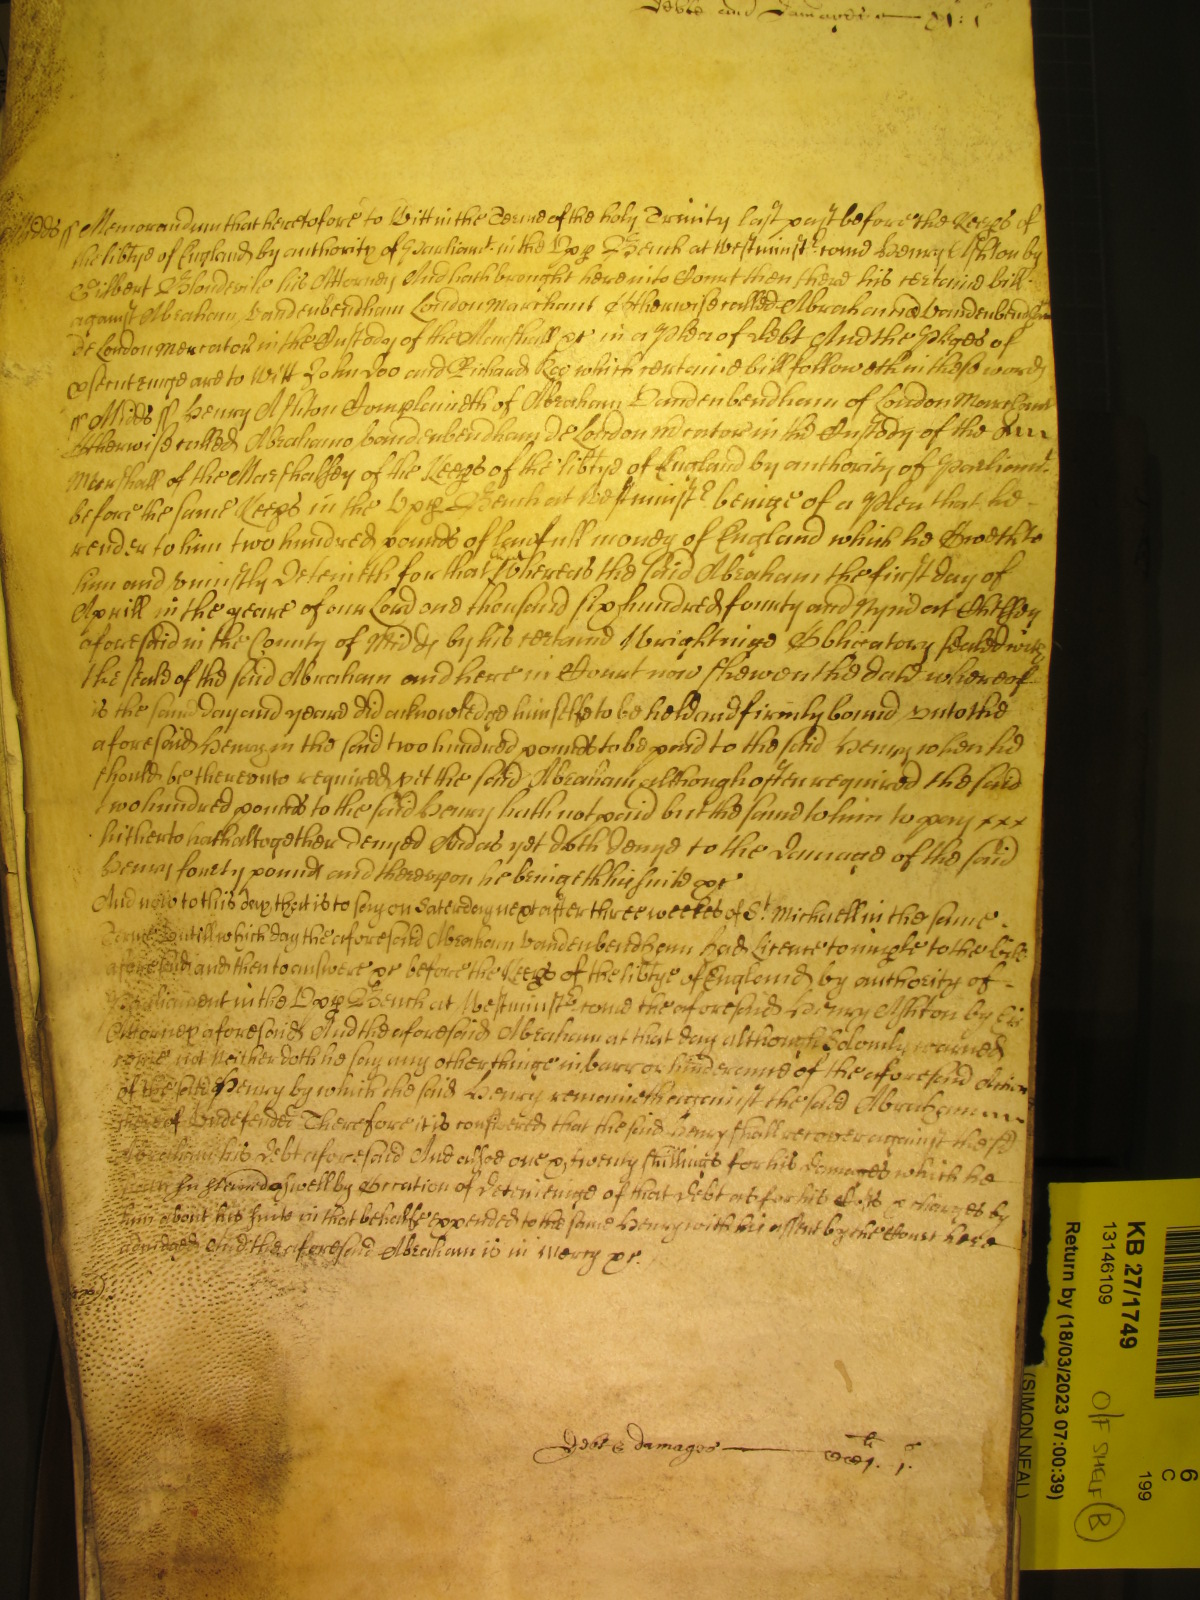 Debte and Damages
Midds ss Memorandum that heretofore to Witt in the Terme of the holy Trinity last past before the Keeps of
the libtye of England by authority of Parliamt. in the Upp Bench at Westminstr. came Henry Ashton by
Gilbert Blondevile his Attorney And hath brought here into Court then there his certaine bill
against Abraham Vandenbendham London Marchant Otherwise called Abrahamo Vandenbendham
de London Mercator in the Custody of the Marshall &c in a Plea of Debt And the Pleges of
psecutinge are to Witt John Doo and Richard Roo which certaine bill followeth in these words
ss Midds ss Henry Ashton Complaineth of Abraham Vandenbendham of London Marchant
Otherwise called Abrahamo Vandenbendham de London Mcator in the Custody of the
Marshall of the Marshalsey of the Keeps of the libtye of England by authority of Parliamt.
before the same Keeps in the Upp Bench at Westminstr beinge of a Plea that he
render to him two hundred pounds of lawfull money of England which he Oweth to
him and uniustly Deteineth for that Whereas the said Abraham the first day of
Aprill in the yeare of our Lord one thousand six hundred fourty and Nyne at
aforesaid in the County of Midds by his certaine Wrightinge Obligatory sealed with
the seale of the said Abraham and here in Court now shewen the date whereof
is the same day and yeare did acknowledge himselfe to be held and firmly bound unto the
aforesaid Henry in the said two hundred pounds to be paid to the said Henry when he
should be thereunto required yet the said Abraham although often required the said
two hundred pounds to the said Henry hath not paid but the same to him to pay xxx
hitherto hath altogether denyed And as yet doth denye to the Damage of the said
Henry forety pounds and thereupon he bringeth his suite &c
And now to this day that is to say on Saterday next after three weekes of St. Michaell in the same
Terme untill which day the aforesaid Abraham Vandenbendham had licence to imple to the bill
aforesaid and then to answere &c before the Keeps of the libtye of England by authority of
Parliament in the Upp Bench at Westminstr. came the aforesaid Henry Ashton by his
Attorney aforesaid And the aforesaid Abraham at that day although Solemly warned
came not Neither doth he say any other thinge in barr or hinderance of the aforesaid Action
of the said Henry by which the said Henry remaineth against the said Abraham
thereof Undefended Therefore it is considered that the said Henry shall recover against the sd
Abraham his Debt aforesaid And alsoe one & twenty shillings for his damages which he
hath susteined aswell by occation of Deteininge of that Debt as for his Costs & charges by
him about his suite in that behalfe expended to the same Henry with his assent by the Court here
adiudged And the aforesaid Abraham is in Mercy &c.
Debt & damages ccj li. j s.
KB 27/1749
13146109
Return by (18/03/2023 07:00:39)
(SIMON NEAL)
O/F SHELF B
6
C
199